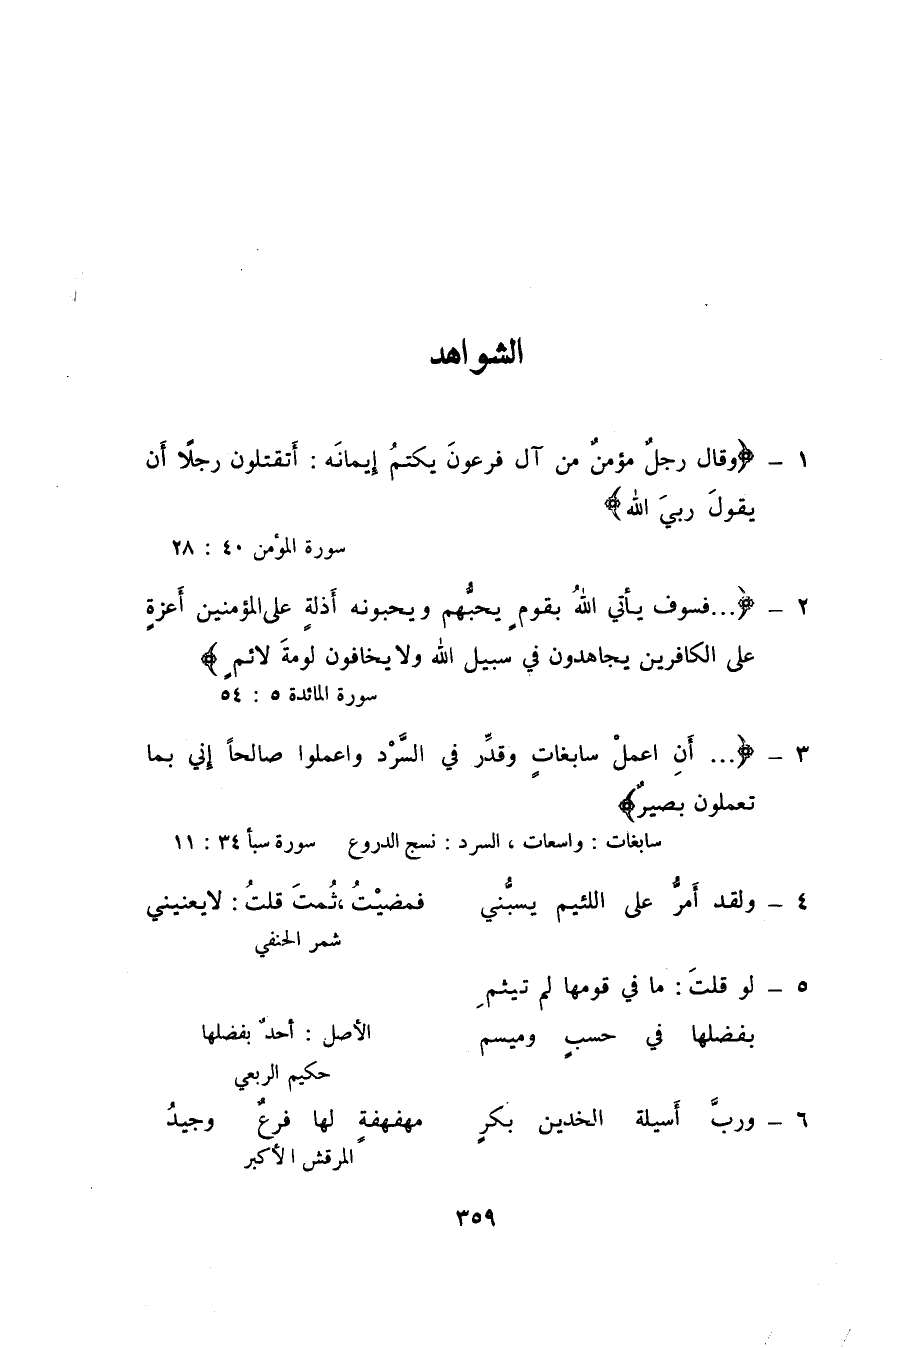 الشواهد
١ – ﴿وقال رجلٌ مؤمنٌ من آل فرعونَ يكتمُ إيمانَه : أَتقتلون رجلًا أَن
يقولَ ربيَ اللّه﴾
سورة المؤمن ٤٠ : ٢٨
٢ – ﴿...فسوف يأتي اللّهُ بقومٍ يحبُّهم ويحبونه أَذلةٍ على المؤمنين أَعزةٍ
على الكافرين يجاهدون في سبيل اللّه ولا يخافون لومةَ لائمٍ﴾
سورة المائدة ٥ : ٥٤
٣ – ﴿... أَنِ اعملْ سابغاتٍ وقدِّر في السَّرْد واعملوا صالحاً إني بما
تعملون بصيرٌ﴾
سابغات : واسعات ، السرد : نسج الدروع سورة سبأ ٣٤ : ١١
٤ – ولقد أَمرُّ على اللئيم يسبُّني فمضيْتُ ،ثُمتَ قلتُ : لايعنيني
شمر الحنفي
٥ – لو قلتَ : ما في قومها لم تيثمِ
بفضلها في حسبٍ وميسم الأصل : أحدٌ بفضلها
حكيم الربعي
٦ – وربَّ أَسيلة الخدين بكرٍ مهفهفةٍ لها فرعٌ وجيدُ
المرقش الأكبر
٣٥٩